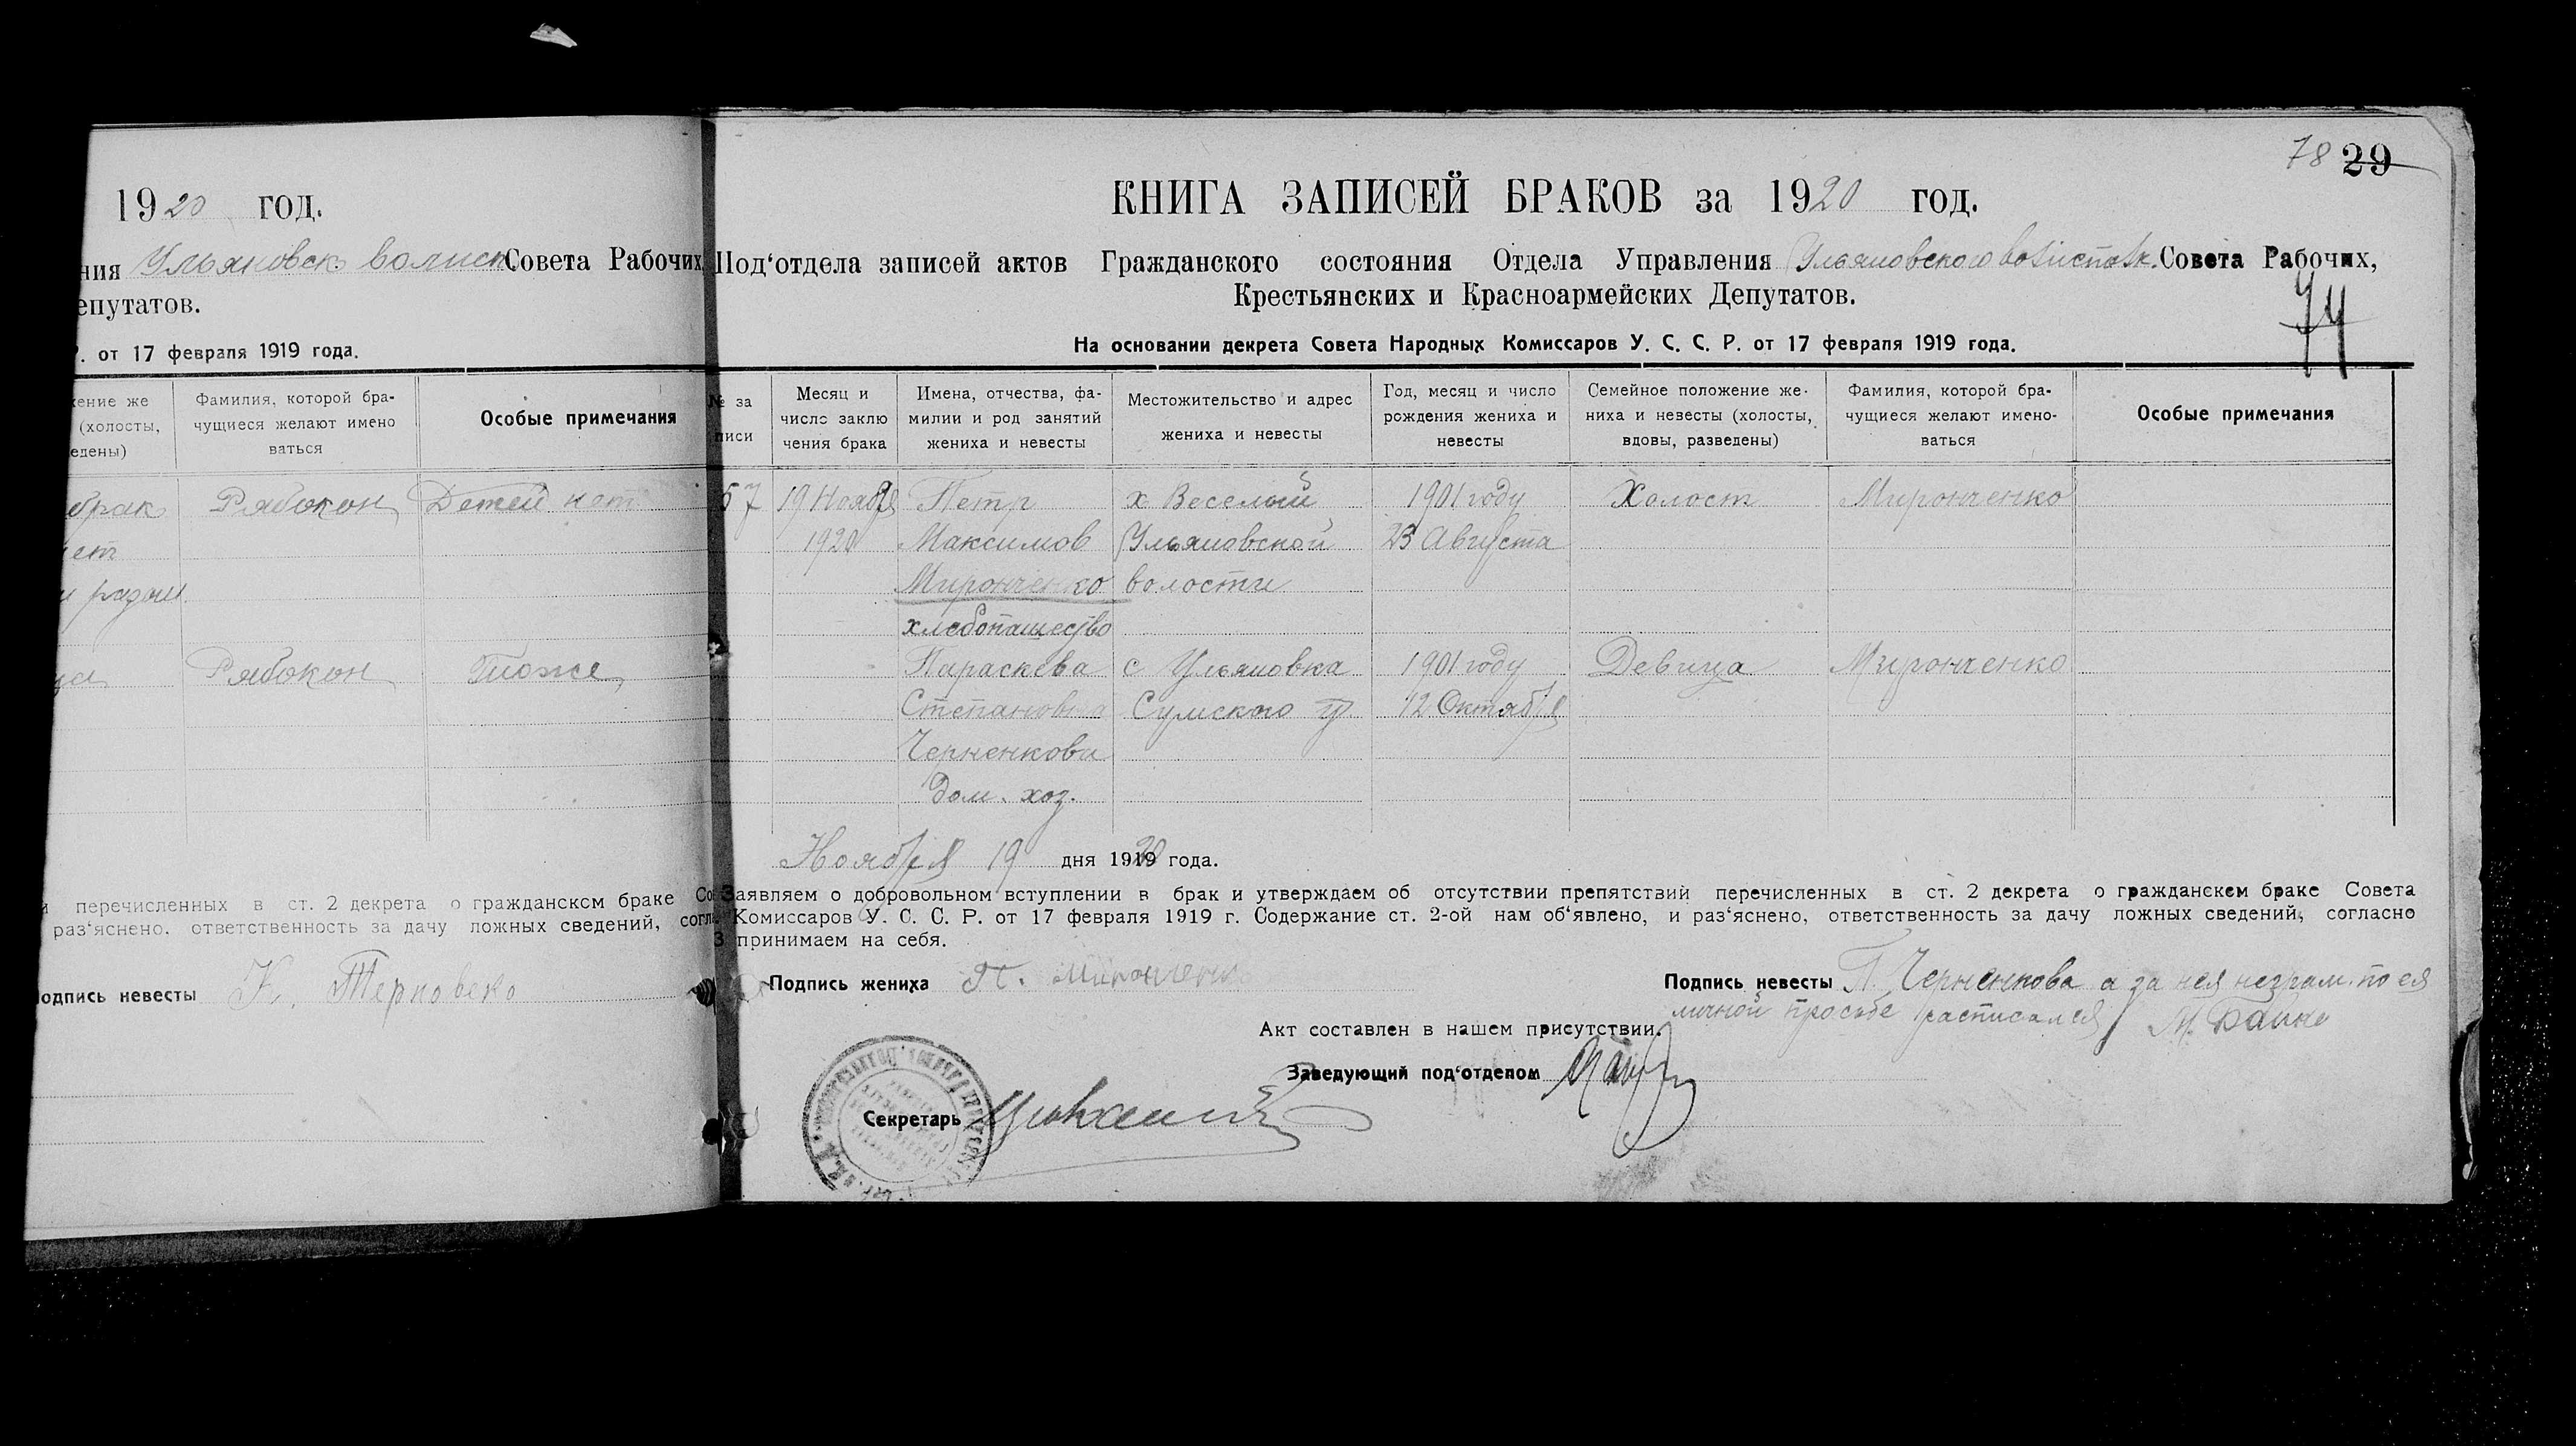 1920 год.
ния Ульяновск волисп. Совета Рабочих,
епутатов.
Р. от 17 февраля 1919 года.
ение же
(холосты,
едены)
Фамилия, которой бра-
чущиеся желают имено
ваться
Особые примечания
брак Рябокон Детей нет
ет
и рядом
ца Рябокон Тоже
и перечисленных в ст. 2 декрета о гражданском браке Со
раз‘яснено, ответственность за дачу ложных сведений, согла
одпись невесты К. Терновско
78 29
КНИГА ЗАПИСЕЙ БРАКОВ за 1920 год.
Под‘отдела записей актов Гражданского состояния Отдела Управления Ульяновского Совета Рабочих,
Крестьянских и Красноармейских Депутатов.
74
На основании декрета Совета Народных Комиссаров У. С. С. Р. от 17 февраля 1919 года.
№ за
писи
Месяц и
число заклю
чения брака
Имена, отчества, фа-
милии и род занятий
жениха и невесты
Местожительство и адрес
жениха и невесты
Год, месяц и число
рождения жениха и
невесты
Семейное положение же-
ниха и невесты (холосты,
вдовы, разведены)
Фамилия, которой бра-
чущиеся желают имено-
ваться
Особые примечания
57 19 Ноября Петр х Веселый 1901 году Холост Миронченко
1920 Максимов Ульяновской 23 Августа
Миронченко волости
хлебопашество
Параскева с Ульяновка 1901 году Девица Миронченко
Степановна Сумского у. 12 Октября
Черненкова
Дом. хоз.
Ноября 19 дня 1920 года.
Заявляем о добровольном вступлении в брак и утверждаем об отсутствии препятствий перечисленных в ст. 2 декрета о гражданском браке Совета
Комиссаров У. С. С. Р. от 17 февраля 1919 г. Содержание ст. 2-ой нам об‘явлено, и раз‘яснено, ответственность за дачу ложных сведений, согласно
3 принимаем на себя.
Подпись жениха П. Миронченко
Подпись невесты П. Черненкова а за нея неграм. по ея
личной просьбе расписался
Акт составлен в нашем присутствии.
Заведующий под‘отделом
Секретарь